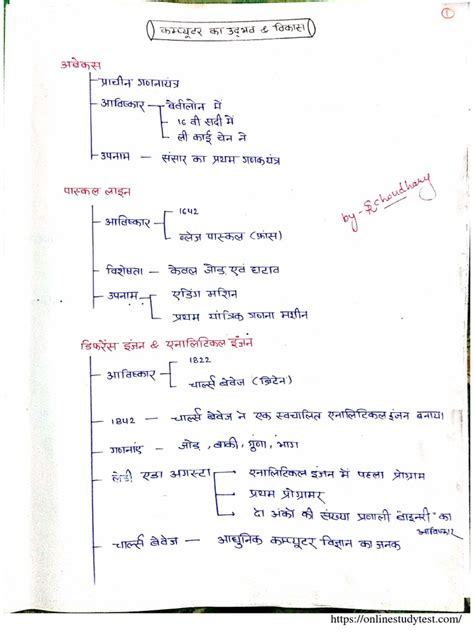 ①
कम्प्यूटर का उद्भव & विकास
अबेकस
प्राचीन गणनायंत्र
आविष्कार
बेबीलोन में
16 वी सदी में
ली काई चेन ने
उपनाम – संसार का प्रथम गणकयंत्र
by - Choudhary
पास्कल लाइन
आविष्कार
1642
ब्लेज पास्कल (फ्रांस)
विशेषता – केवल जोड़ एवं घटाव
उपनाम
एडिंग मशिन
प्रथम यांत्रिक गणना मशीन
डिफरेंस इंजन & एनालिटिकल इंजन
आविष्कार
1822
चार्ल्स बेबेज (ब्रिटेन)
1842 – चार्ल्स बेबेज ने एक स्वचालित एनालिटिकल इंजन बनाया।
गणनाएं – जोड़, बाकी, गुणा, भाग
लेडी एडा अगस्टा
एनालिटिकल इंजन में पहला प्रोग्राम
प्रथम प्रोग्रामर
दो अंकों की संख्या प्रणाली बाइनरी का आविष्कार
चार्ल्स बेबेज – आधुनिक कम्प्यूटर विज्ञान का जनक
https://onlinestudytest.com/